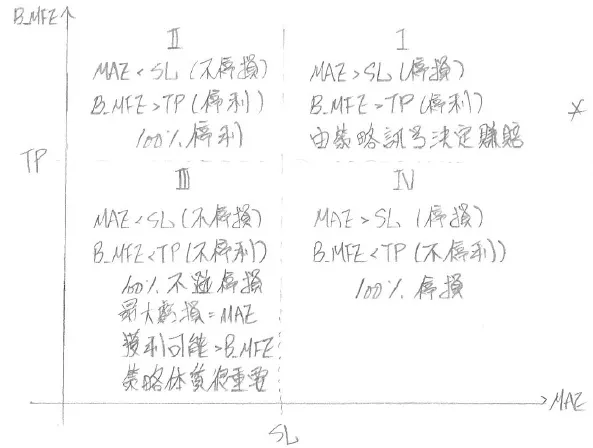 B_MFE
II
MAE < SL (不停損)
B_MFE > TP (停利)
100% 停利
I
MAE > SL (停損)
B_MFE > TP (停利)
由策略訊号決定賺賠
TP
III
MAE < SL (不停損)
B_MFE < TP (不停利)
100% 不碰停損
最大虧損 = MAE
獲利可能 > B_MFE
策略体質很重要
IV
MAE > SL (停損)
B_MFE < TP (不停利)
100% 停損
MAE
SL